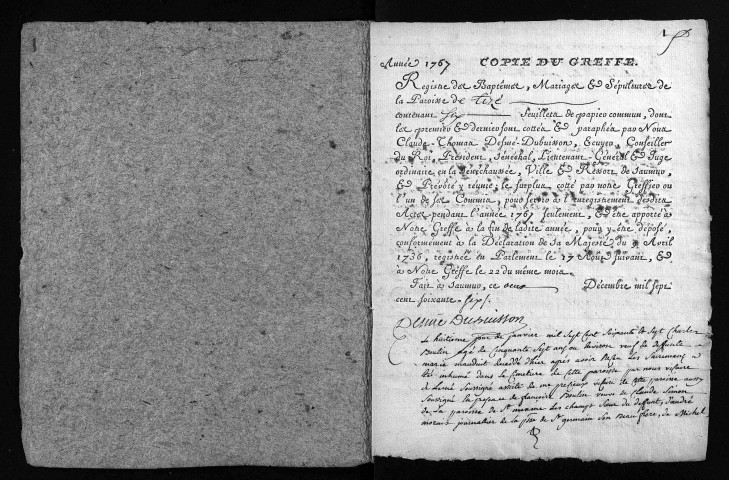 1
Année 1767 COPIE DU GREFFE.
Registre des Baptêmes, Mariages & Sépultures de
la Paroisse de Lizé
contenant six feuillets de papier commun, dont
les premier & dernier sont cottés & paraphés par Nous
Claude-Thomas Desmé-Dubuisson, Ecuyer, Conseiller
du Roi, Président, Sénéchal, Lieutenant-Général & Juge
ordinaire en la Sénéchaussée, Ville & Ressort de Saumur,
& Prévôté y réunie; le surplus cotté par notre Greffier ou
l'un de ses Commis, pour servir à l'enregistrement desdits
Actes pendant l'année 1767 seulement, & être apporté à
Notre Greffe à la fin de ladite année, pour y être déposé,
conformément à la Déclaration de Sa Majesté du 9 Avril
1736, registrée en Parlement le 17 Août suivant, &
à Notre Greffe le 22 du même mois.
Fait à Saumur, ce Décembre mil sept
cent soixante-six.
Desmé Dubuisson
Le huitième jour de janvier mil sept cent soixante et sept Charles
Boulin agé de Cinquante sept ans ou Environ veuf de deffunte
marie décédé d'hier après avoir reçu les Sacrements a
été inhumé dans le Cimetière de cette paroisse par nous vicaire
de Soussigné assisté de vicaire de cette paroisse aussy
Soussigné En presence de françoise Boulin veuve de Claude Simon
de La paroisse de St les champs Sœur du deffunt, d'andré
journalier de la psse de St germain Son Beau frère, de Michel